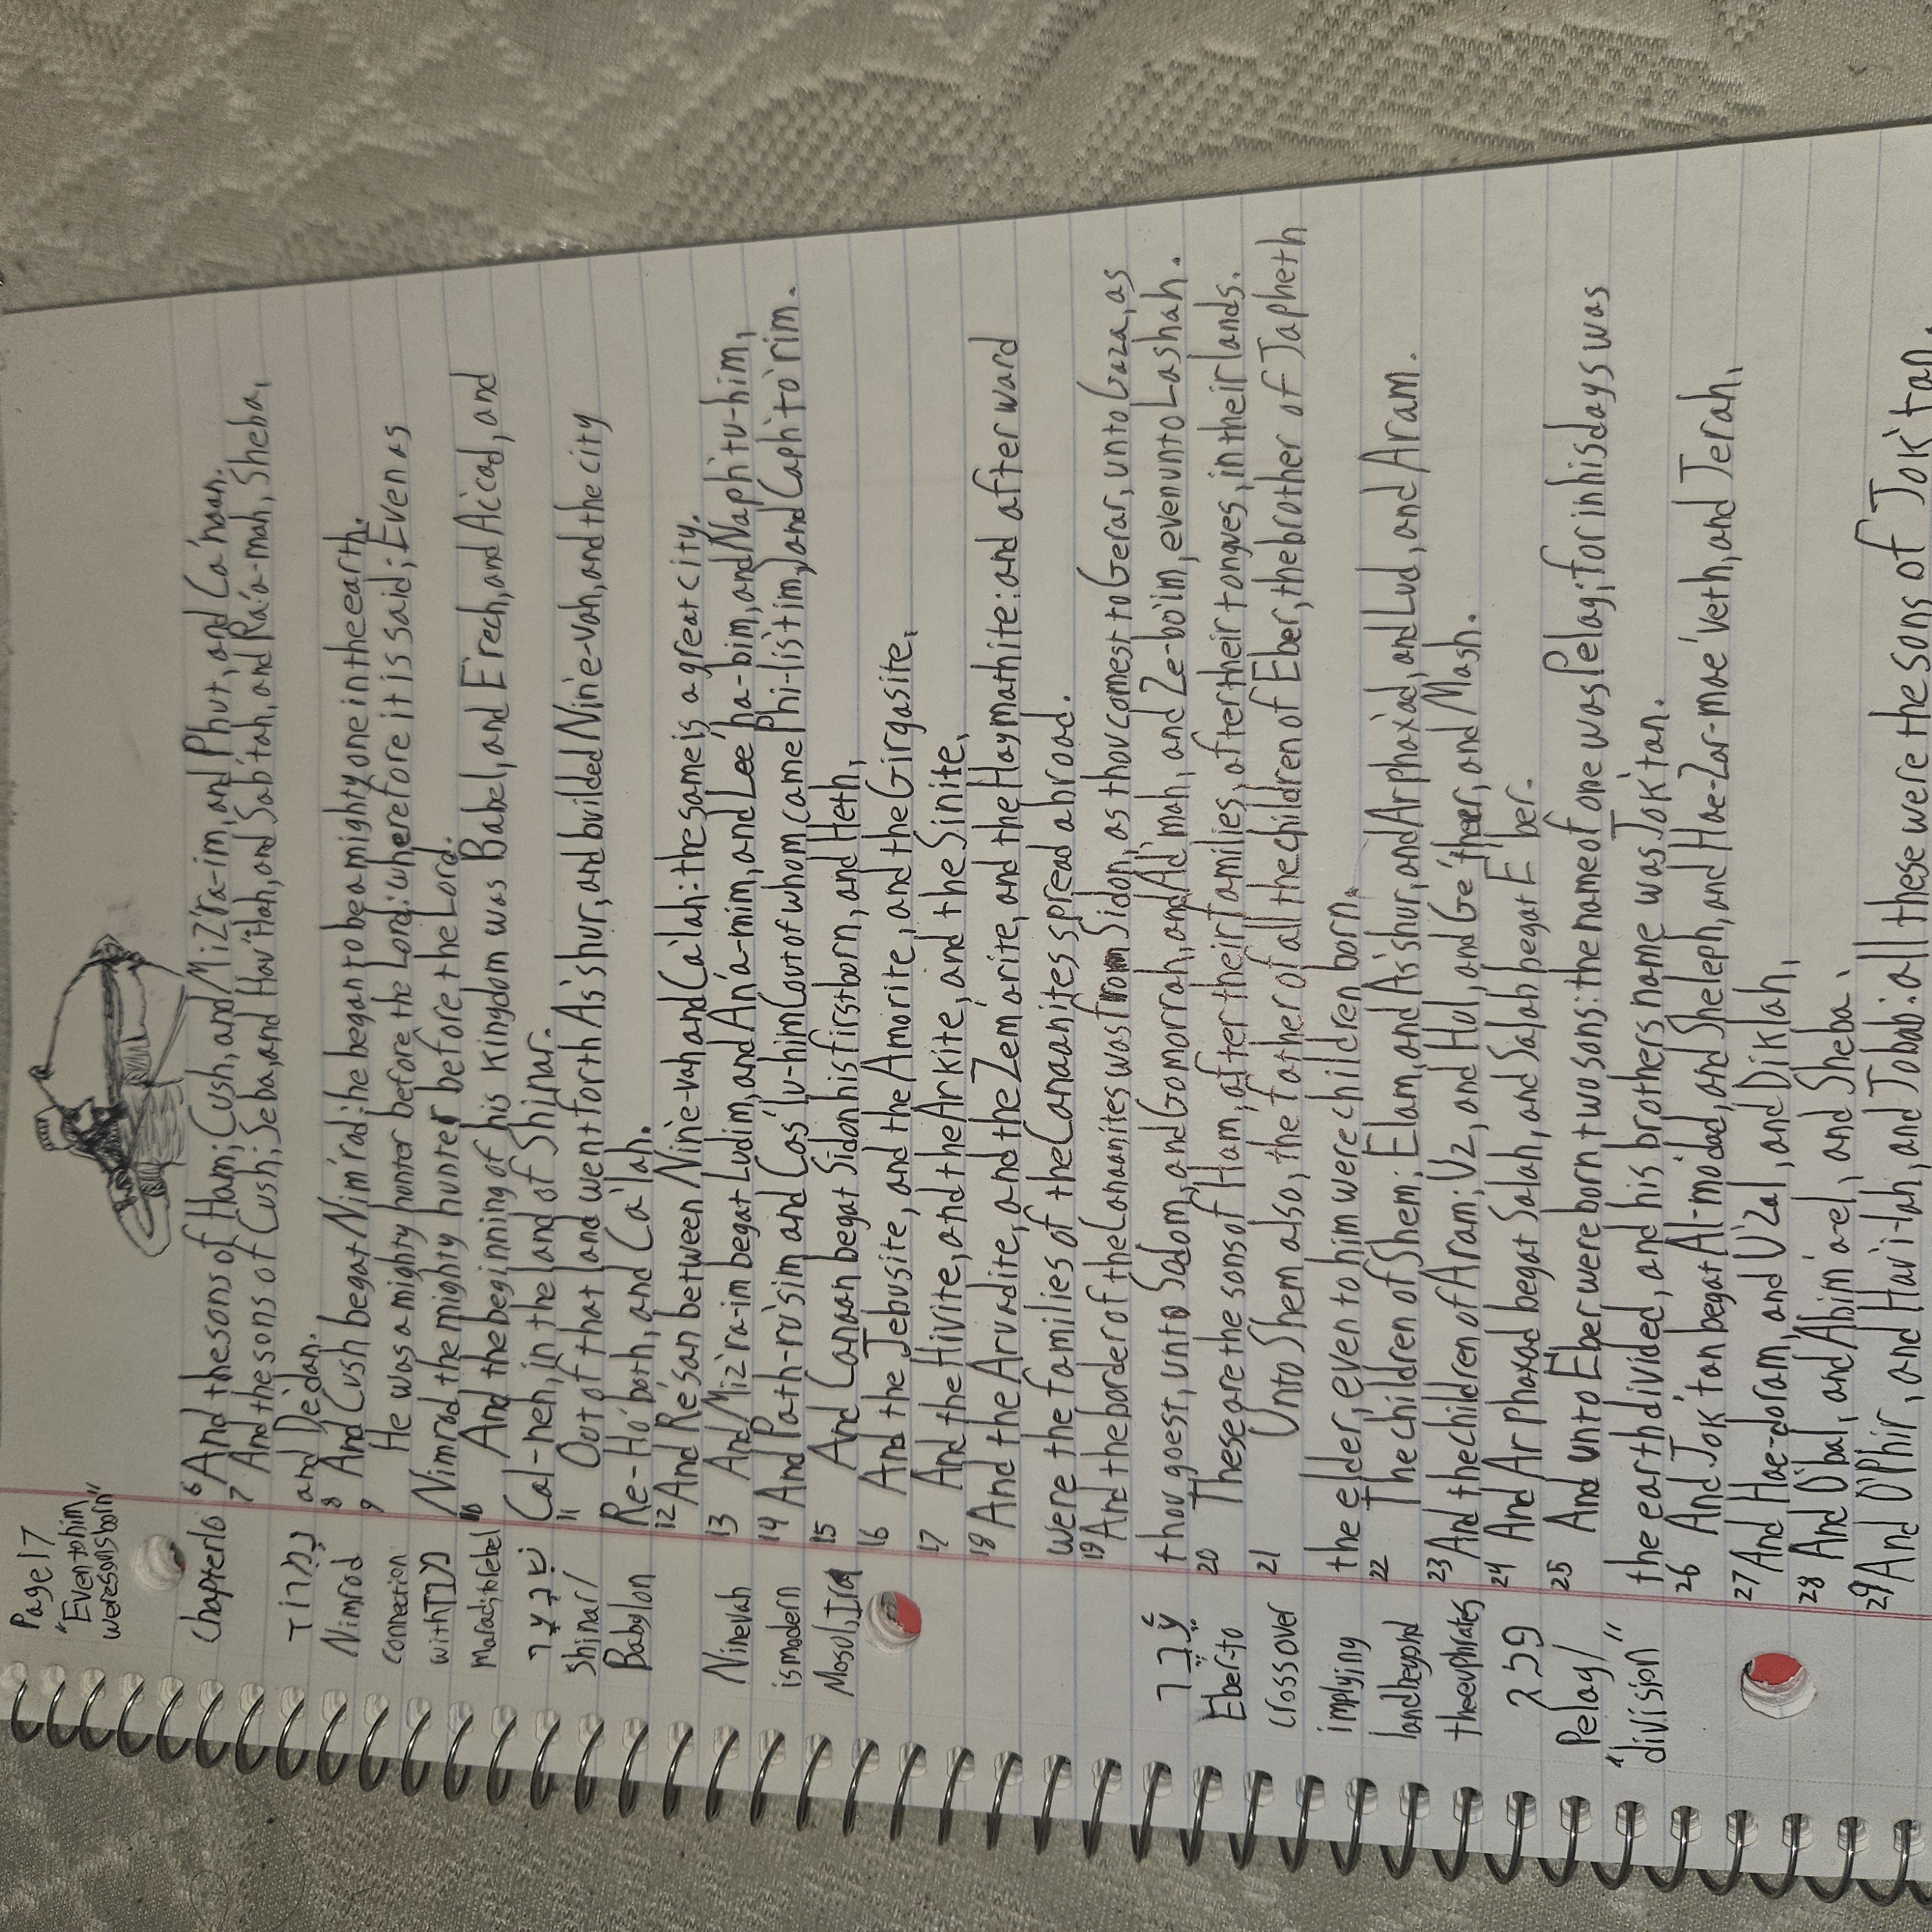 Page 17
"Even to him
were sons born"
Chapter 10
נמרד
Nimrod
connection
with מרד
Marad; to rebel
שנער
Shinar/
Babylon
Ninevah
is modern
Mosul, Iraq
עבר
Eber-to
cross over
implying
land beyond
the euphrates
פלג
Pelag/
"division"
6 And the sons of Ham; Cush, and Miz'ra-im, and Phut, and Ca'naan.
7 And the sons of Cush; Seba, and Hav'ilah, and Sab'tah, and Ra'a-mah, Sheba,
and De'dan.
8 And Cush begat Nim'rod: he began to be a mighty one in the earth.
9 He was a mighty hunter before the Lord: wherefore it is said; Even as
Nimrod the mighty hunter before the Lord.
10 And the beginning of his Kingdom was Babel, and Erech, and Accad, and
Cal-neh, in the land of Shinar.
11 Out of that land went forth As'shur, and builded Nin'e-vah, and the city
Re-Ho'both, and Ca'lah.
12 And Re'san between Nin'e-vah and Ca'lah: the same is a great city.
13 And Miz'ra-im begat Ludim, and An'a-mim, and Lee'ha-bim, and Naph'tu-him,
14 And Path-ru'sim and Cas'lu-him (out of whom came Phi-lis'tim,) and Caph'to'rim.
15 And Canaan begat Sidon his firstborn, and Heth,
16 And the Jebusite, and the Amorite, and the Girgasite,
17 And the Hivite, and the Arkite, and the Sinite,
18 And the Arvadite, and the Zem'arite, and the Haymathite: and afterward
were the families of the Canaanites spread abroad.
19 And the border of the Canaanites was from Sidon, as thou comest to Gerar, unto Gaza, as
thou goest, unto Sodom, and Gomorrah, and Ad'mah, and Ze-bo'im, even unto Lashah.
20 These are the sons of Ham, after their families, after their tongues, in their lands.
21 Unto Shem also, the father of all the children of Eber, the brother of Japheth
the elder, even to him were children born.
22 The children of Shem; Elam, and As'shur, and Arphaxad, and Lud, and Aram.
23 And the children of Aram; Uz, and Hul, and Ge'ther, and Mash.
24 And Arphaxad begat Salah, and Salah begat Eber.
25 And unto Eber were born two sons: the name of one was Pelag; for in his days was
the earth divided, and his brothers name was Jok'tan.
26 And Jok'tan begat Al-mo'dad, and Sheleph, and Hae-zar-mae'veth, and Jerah,
27 And Hae-doram, and U'zal, and Diklah,
28 And O'bal, and Abim'a-el, and Sheba,
29 And O'Phir, and Hav'i-lah, and Jobab: all these were the sons of Jok'tan.